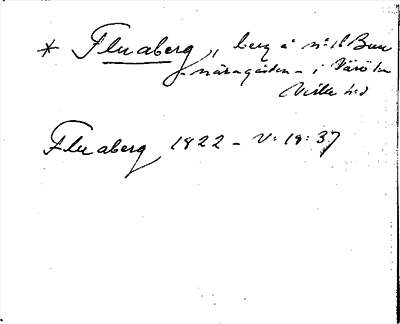 * Fluaberg, berg å n:o 11 Bun
näragården - i Värö sn
Viske hd
Fluaberg 1822 - V: 19: 37